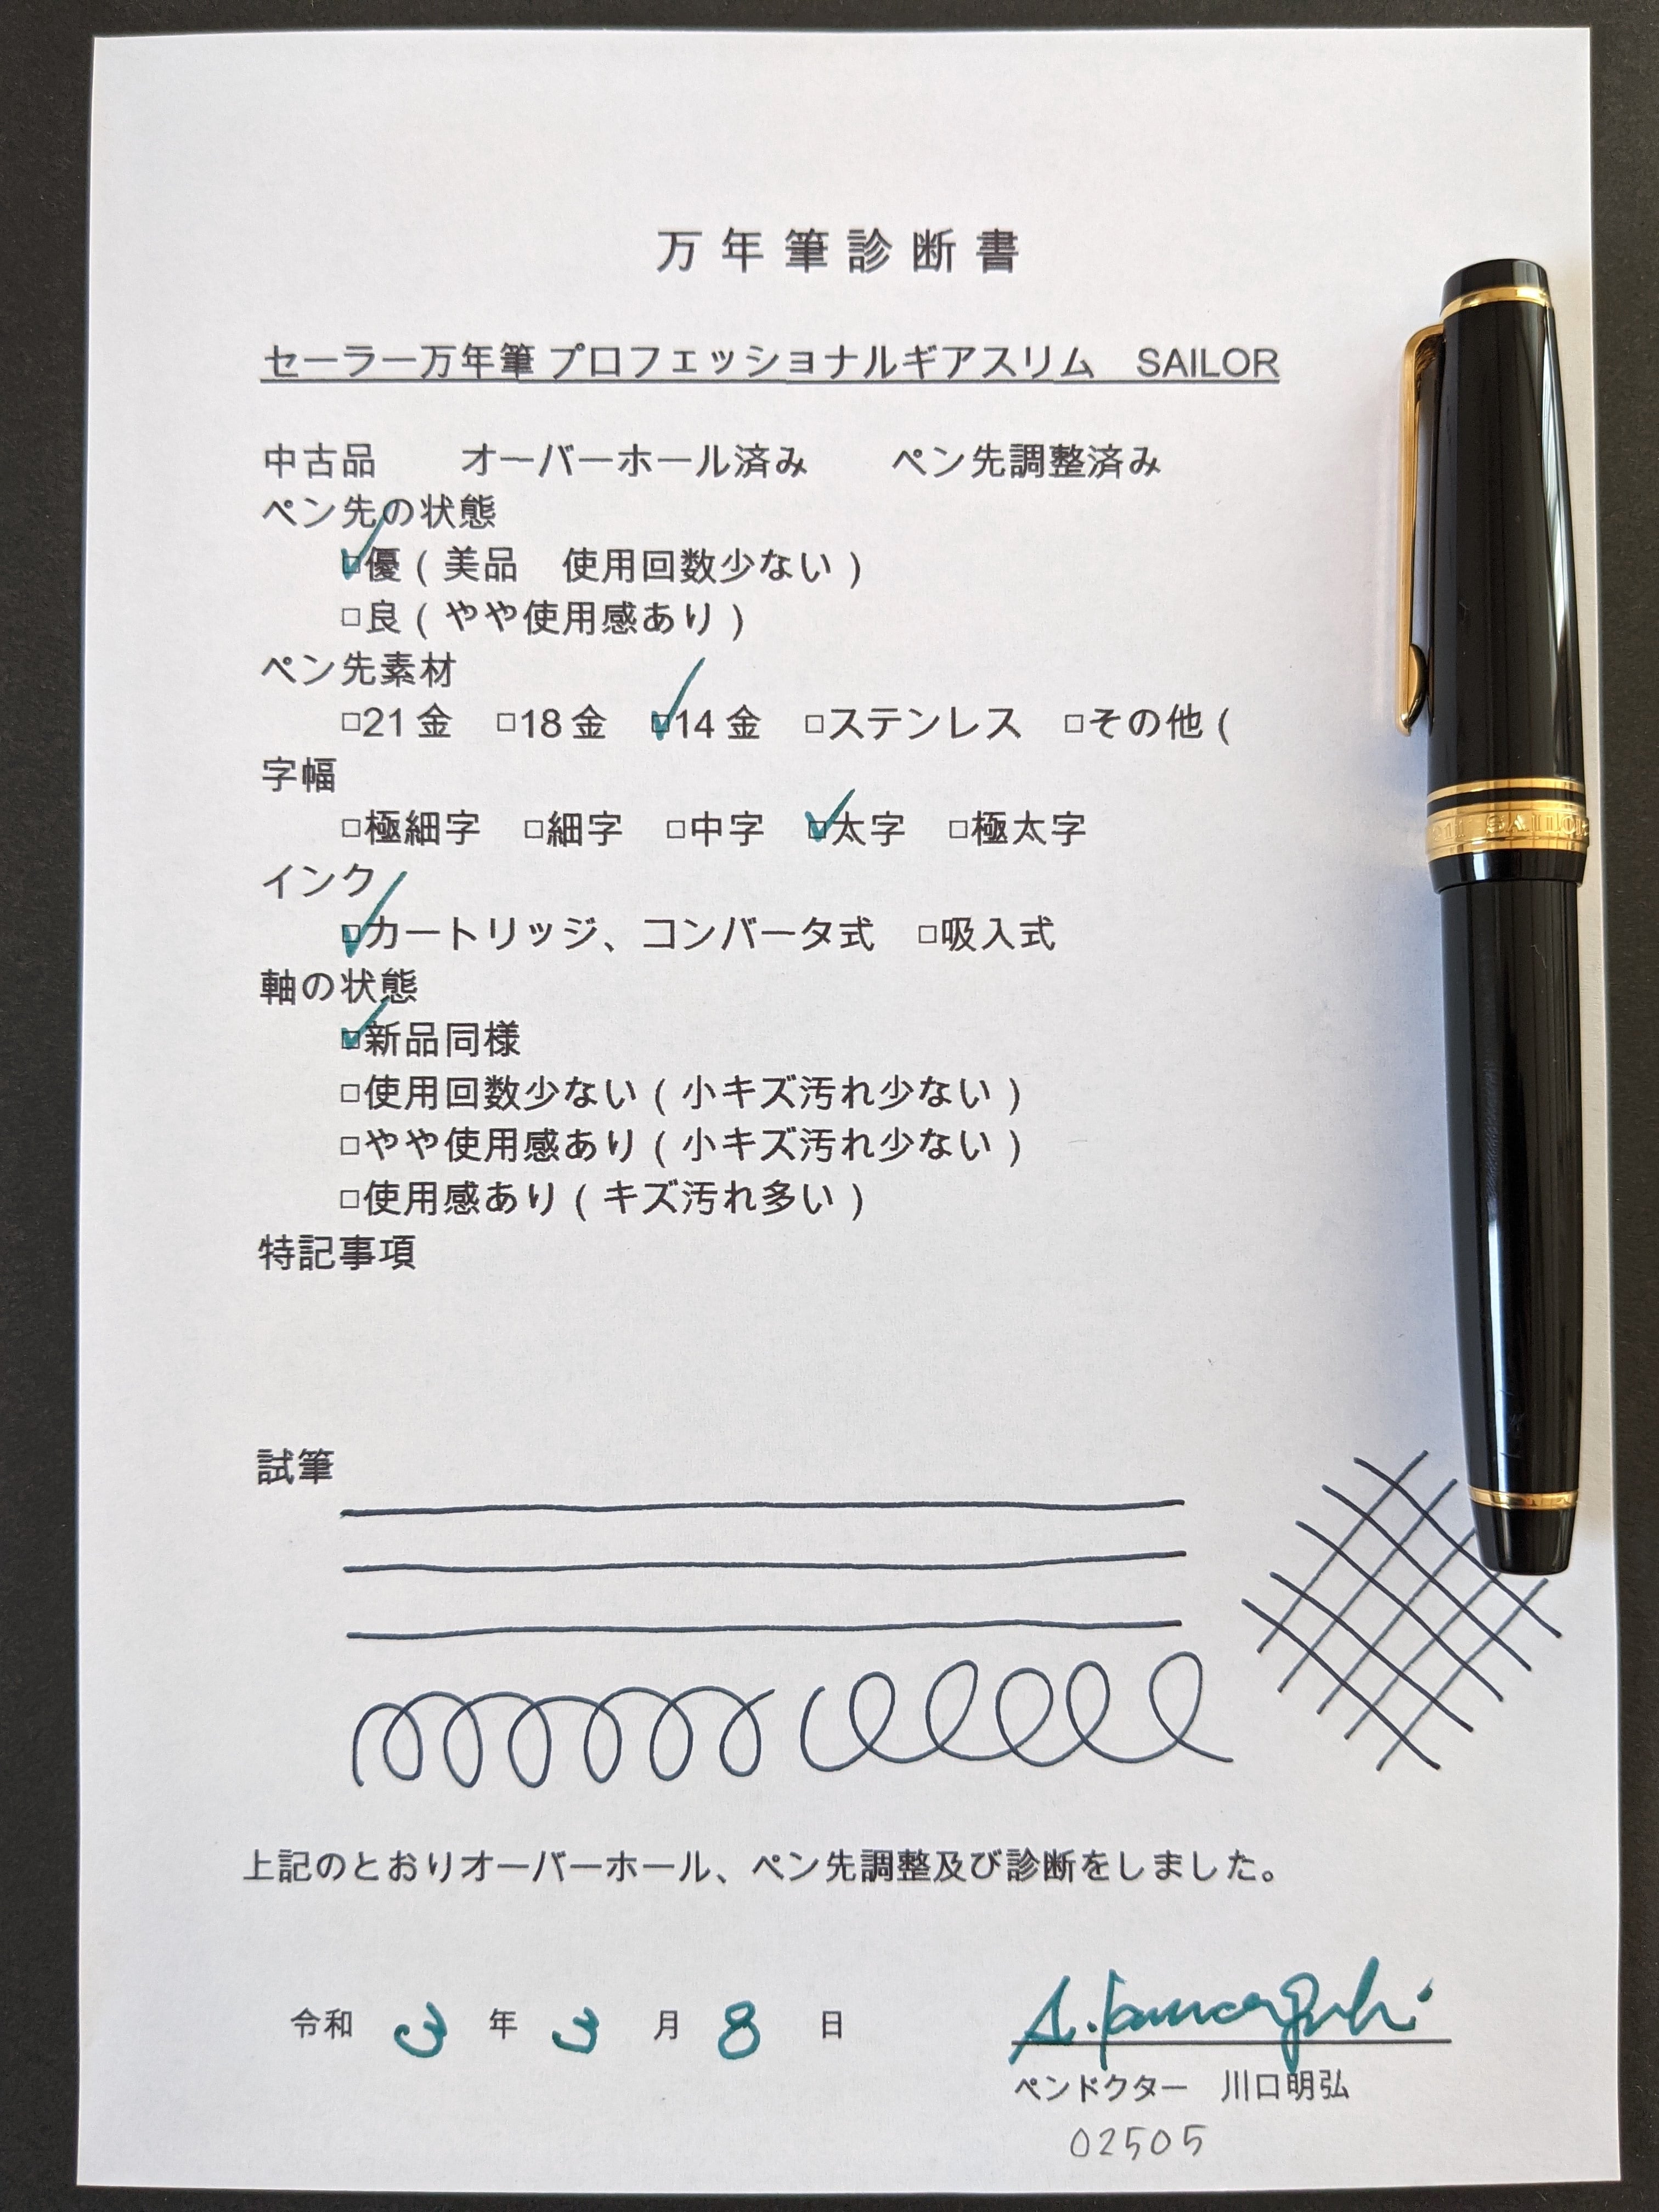 万年筆診断書
セーラー万年筆 プロフェッショナルギアスリム　SAILOR
中古品　　オーバーホール済み　　ペン先調整済み
ペン先の状態
☑優（美品　使用回数少ない）
□良（やや使用感あり）
ペン先素材
□21金　□18金　☑14金　□ステンレス　□その他（
字幅
□極細字　□細字　□中字　☑太字　□極太字
インク
☑カートリッジ、コンバータ式　□吸入式
軸の状態
☑新品同様
□使用回数少ない（小キズ汚れ少ない）
□やや使用感あり（小キズ汚れ少ない）
□使用感あり（キズ汚れ多い）
特記事項
試筆
上記のとおりオーバーホール、ペン先調整及び診断をしました。
令和 3 年 3 月 8 日
A. Kawaguchi
ペンドクター　川口明弘
02505
SAILOR